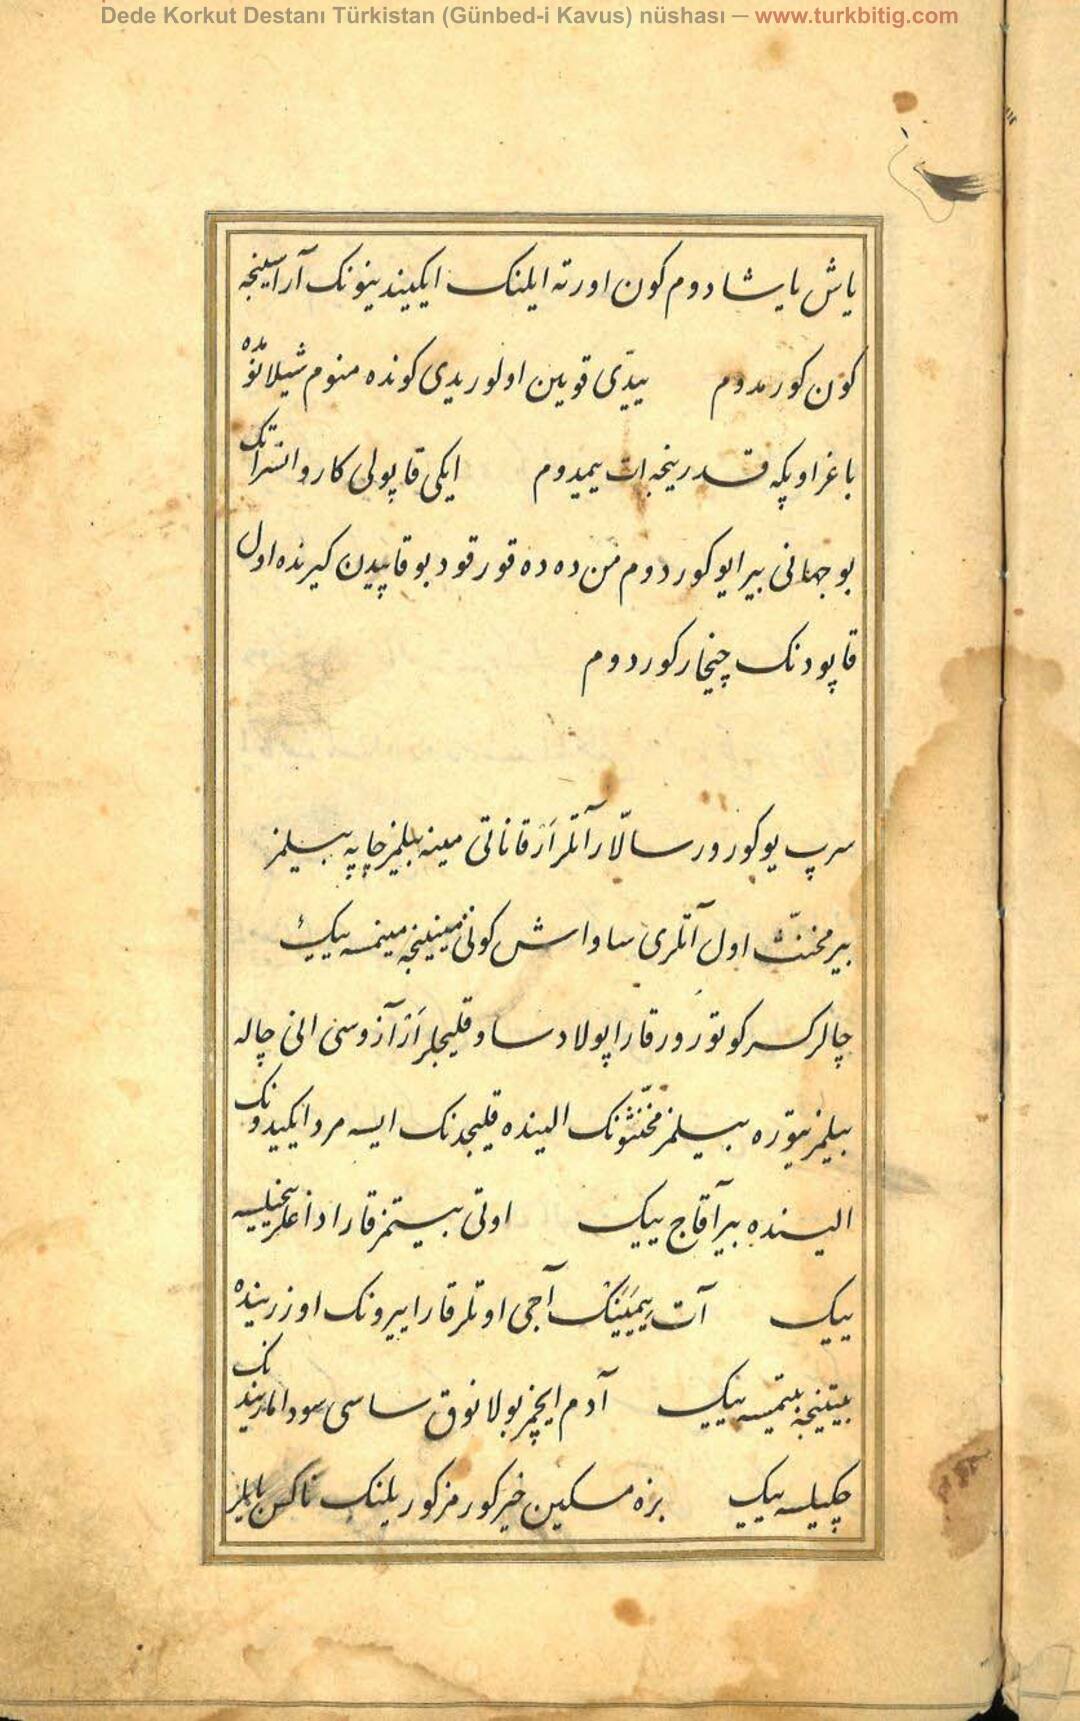 Dede Korkut Destanı Türkistan (Günbed-i Kavus) nüshası — www.turkbitig.com
یاش یایشادوم کون اورته ایلنک ایکیندینونک آراسینجه
کون کورمدوم ییدّی قویین اولوریدی کونده منوم شیلانومده
باغراوپکه قدرینجه ات ییمیدوم ایکی قاپولی کاروانسراتک
بو جهانی بیر ایو کوردوم من ده ده قورقود بو قاپیدن کیرنده اول
قاپودنک چیخار کوردوم
سرپ یوکورور سالّار آتلر ار قاناتی مینه بیلمز چاپه بیلمز
بیر مخنّث اول آتلری ساواش کونی مینینجه مینمسه ییک
چالر کسر کوتورور قارا پولاد ساو قلیجلر ار آزوسی الی چاله
بیلمز تیوره بیلمز مخنّثونک الینده قلیجدنک ایسه مرد ایکیدونک
الینده بیر آقاج ییک اوتی بیتمز قارا داغلر ییخیلسه
ییک آت ییمیینک آجی اوتلر قارا ییرونک اوزرینده
بیتینجه بیتمسه ییک آدم ایچمز بولانوق ساسی سودامارینک
چکیلسه ییک بزه مسکین خیر کورمز کوریلنک ناکس بایلر